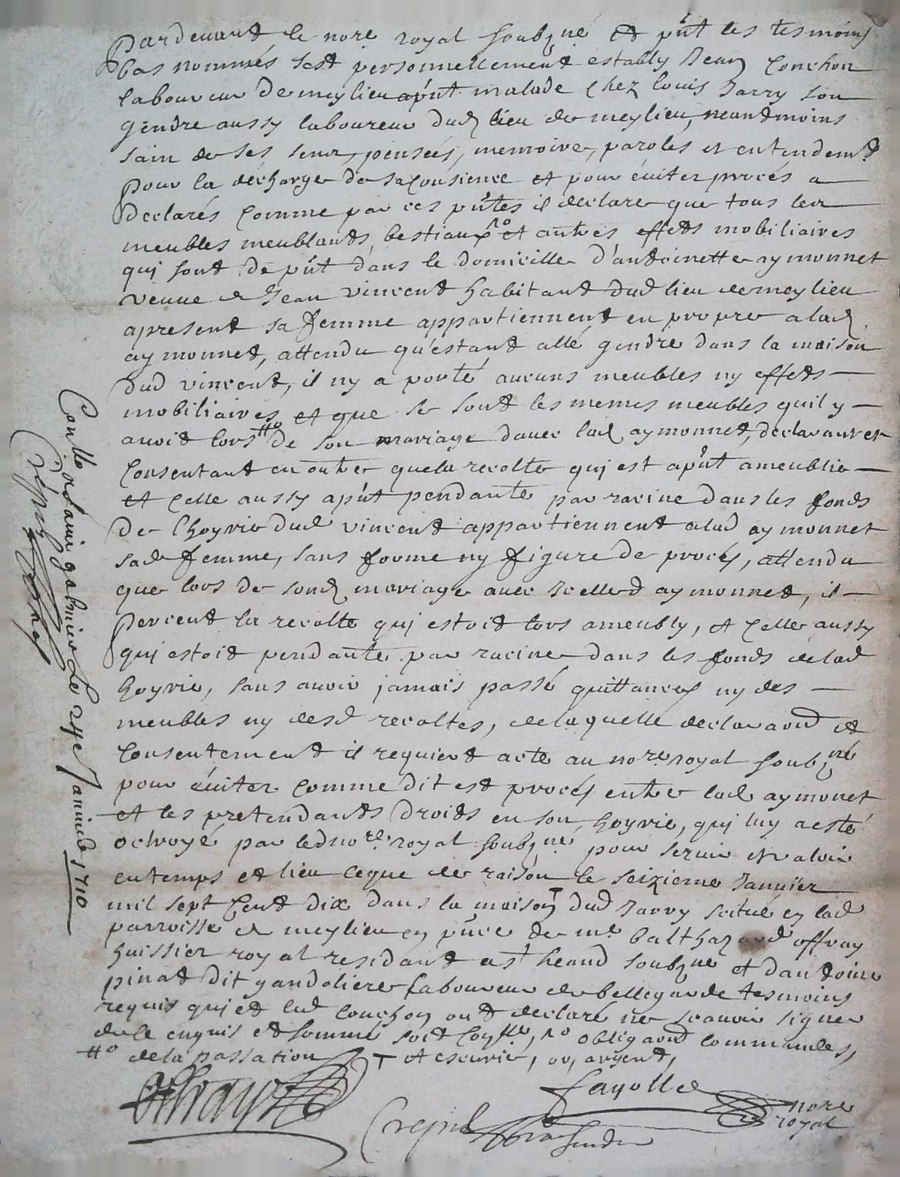 Pardevant le nore royal soubzne et pnt les tesmoins
bas nommés sest personnellement estably Jean Conchon
laboureur de meylieu apnt malade chez Louis Jarry son
gendre aussy laboureur dud lieu de meylieu, neandmoins
sain de ses sens, pensées, memoire, paroles et entendemt
pour la decharge de sa consience et pour éviter procés a
declarés comme par ces pntes il declare que tous les
meubles meublants, bestiaux et autres effets mobiliaires
qui sont de pnt dans le domicille d'antoinette aymonnet
veuve de Jean vincent habitant dud lieu de meylieu
apresent sa femme appartiennent en propre a lad
aymonnet, attendu qu'estant allé gendre dans la maison
dud vincent, il ny a porté aucuns meubles ny effets
mobiliaires et que se sont les memes meubles quil y
avoit lors de son mariage avec lad aymonnet, declarant et
consentant en outre que la recolte qui est apnt ameublie
et celle aussy apnt pendante par racine dans les fonds
de l'hoyrie dud vincent appartiennent a lad aymonnet
sad femme, sans forme ny figure de procés, attendu
que lors de sond mariage avec icelle d aymonnet, il
percent la recolte qui estoit lors ameubly, et celle aussy
qui estoit pendante par racine dans les fonds de lad
hoyrie, sans avoir jamais passé quittances ny des
meubles ny desd recoltes, de laquelle declaraon et
consentement il requiert acte au nore royal soubzné
pour éviter comme dit est procés entre lad aymonet
et les pretendants droits en son hoyrie, qui luy a esté
octroyé par led nore royal soubzne pour servir et valoir
en temps et lieu ce que de raison le seizieme Janvier
mil sept cent dix dans la maison dud Jarry scitué en lad
parroisse de meylieu en pnce de me balthazard offray
huissier royal residant a st heand soubzne et d'antoine
pinat dit gandoliere laboureur de bellegarde tesmoins
requis qui et led Conchon ont declaré ne scavoir signer
de ce enquis et sommé soit
de la passation T et escurie, or, argent,
offray
Fayolle
nore
royal
Conllé a Saint galmier le 24e Janvier 1710